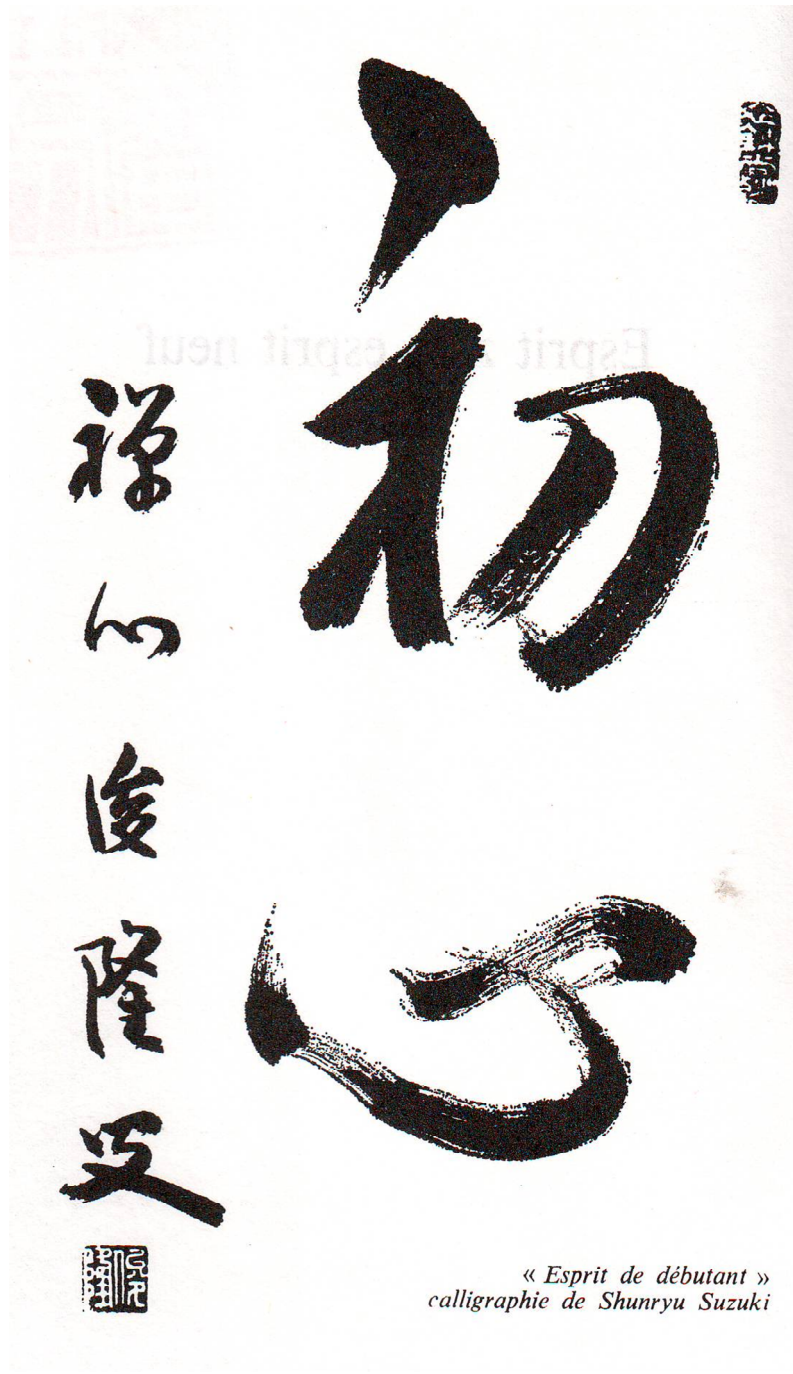 初心
禅心俊隆叟
« Esprit de débutant »
calligraphie de Shunryu Suzuki